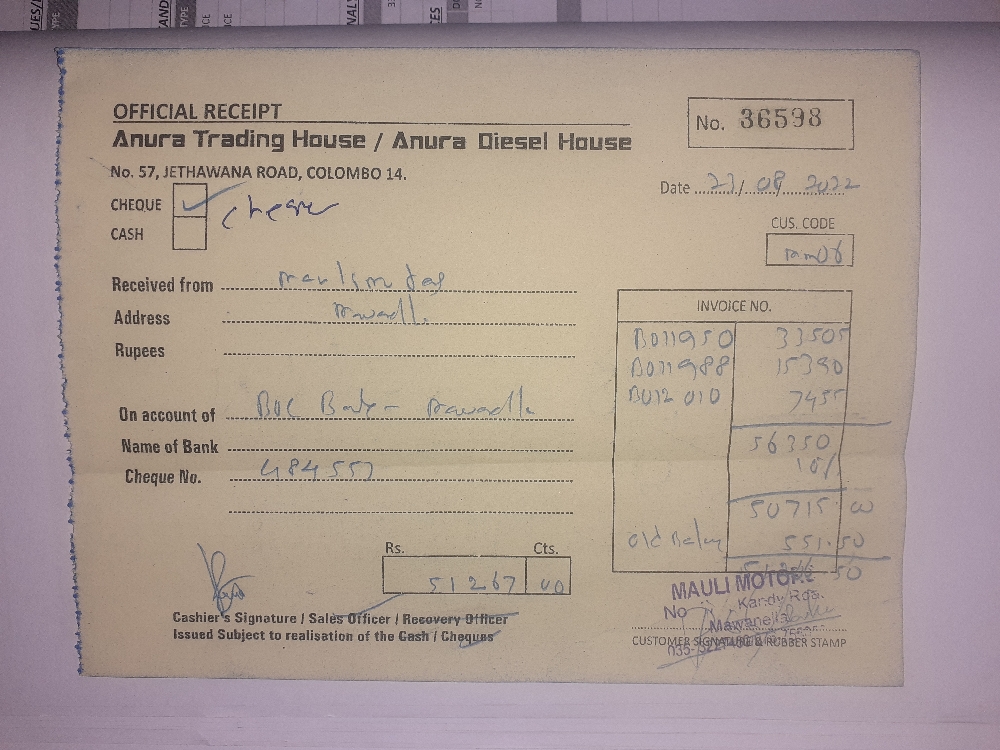 OFFICIAL RECEIPT
Anura Trading House / Anura Diesel House
No. 57, JETHAWANA ROAD, COLOMBO 14.
No. 36598
Date 23/ 08 2022
CHEQUE ✓ cheque
CASH
CUS. CODE
Received from
Address
Rupees
On account of BOC Bank -
Name of Bank
Cheque No. 484557
INVOICE NO.
B011950 33505
B011988 15390
B012010 7455
56350
10/
50715.00
Old Balan 551.50
50
Rs. Cts.
51267 00
Cashier's Signature / Sales Officer / Recovery Officer
Issued Subject to realisation of the Cash / Cheques
MAULI MOTORS
No Kandy Rd.
Mawanella
035-
CUSTOMER SIGNATURE & RUBBER STAMP